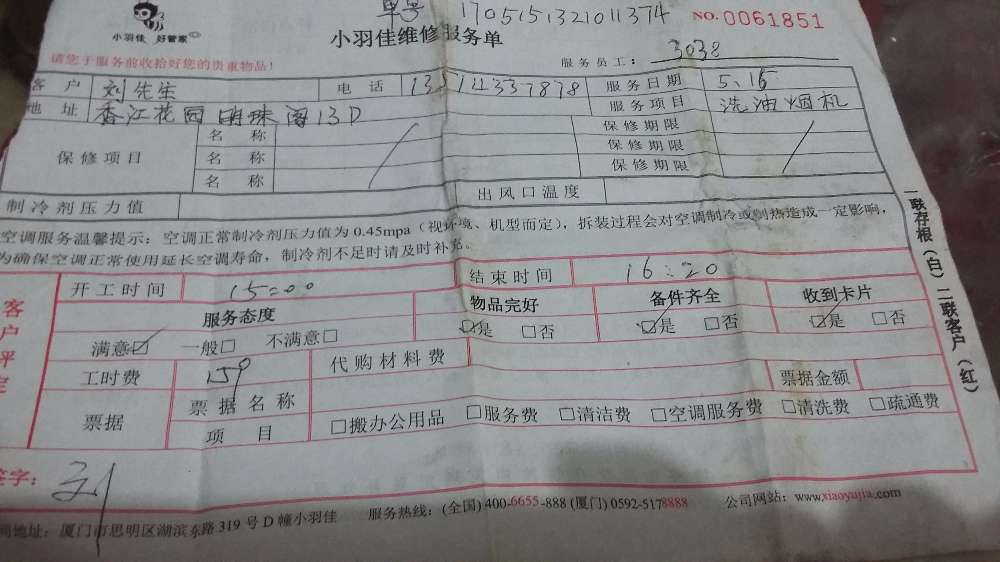 单号 1705151321011374
NO.0061851
小羽佳 好管家
小羽佳维修服务单
请您于服务前收拾好您的贵重物品！
服务员工： 3038
客 户 刘先生 电 话 13514337878 服务日期 5.15
地 址 香江花园明珠阁13D 服务项目 洗油烟机
保修项目 名 称 保修期限
名 称 保修期限
名 称 保修期限
制冷剂压力值 出风口温度
空调服务温馨提示：空调正常制冷剂压力值为 0.45mpa（视环境、机型而定），拆装过程会对空调制冷或制热造成一定影响，
为确保空调正常使用延长空调寿命，制冷剂不足时请及时补充。
一联存根（白）二联客户（红）
客户评定
开工时间 15:00 结束时间 16:20
服务态度 物品完好 备件齐全 收到卡片
满意☑ 一般□ 不满意□ ☑是 □否 ☑是 □否 ☑是 □否
工时费 159 代购材料费 票据金额
票据 票据名称
项 目 □搬办公用品 □服务费 □清洁费 □空调服务费 □清洗费 □疏通费
签字： 刘
地址：厦门市思明区湖滨东路 319 号 D 幢小羽佳 服务热线：(全国) 400-6655-888 (厦门) 0592-5178888 公司网站：www.xiaoyujia.com